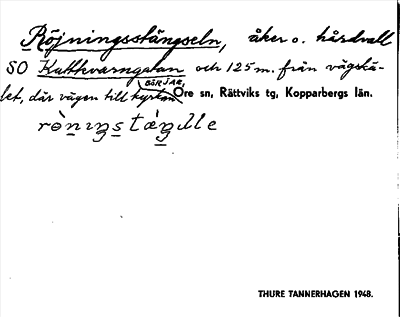 Röjningsstängseln, åker o. hårdvall
SO Kattkvarngatan och 125 m. från vägskä-
BÖRJAR.
let, där vägen till kyrkan Öre sn, Rättviks tg, Kopparbergs län.
THURE TANNERHAGEN 1948.